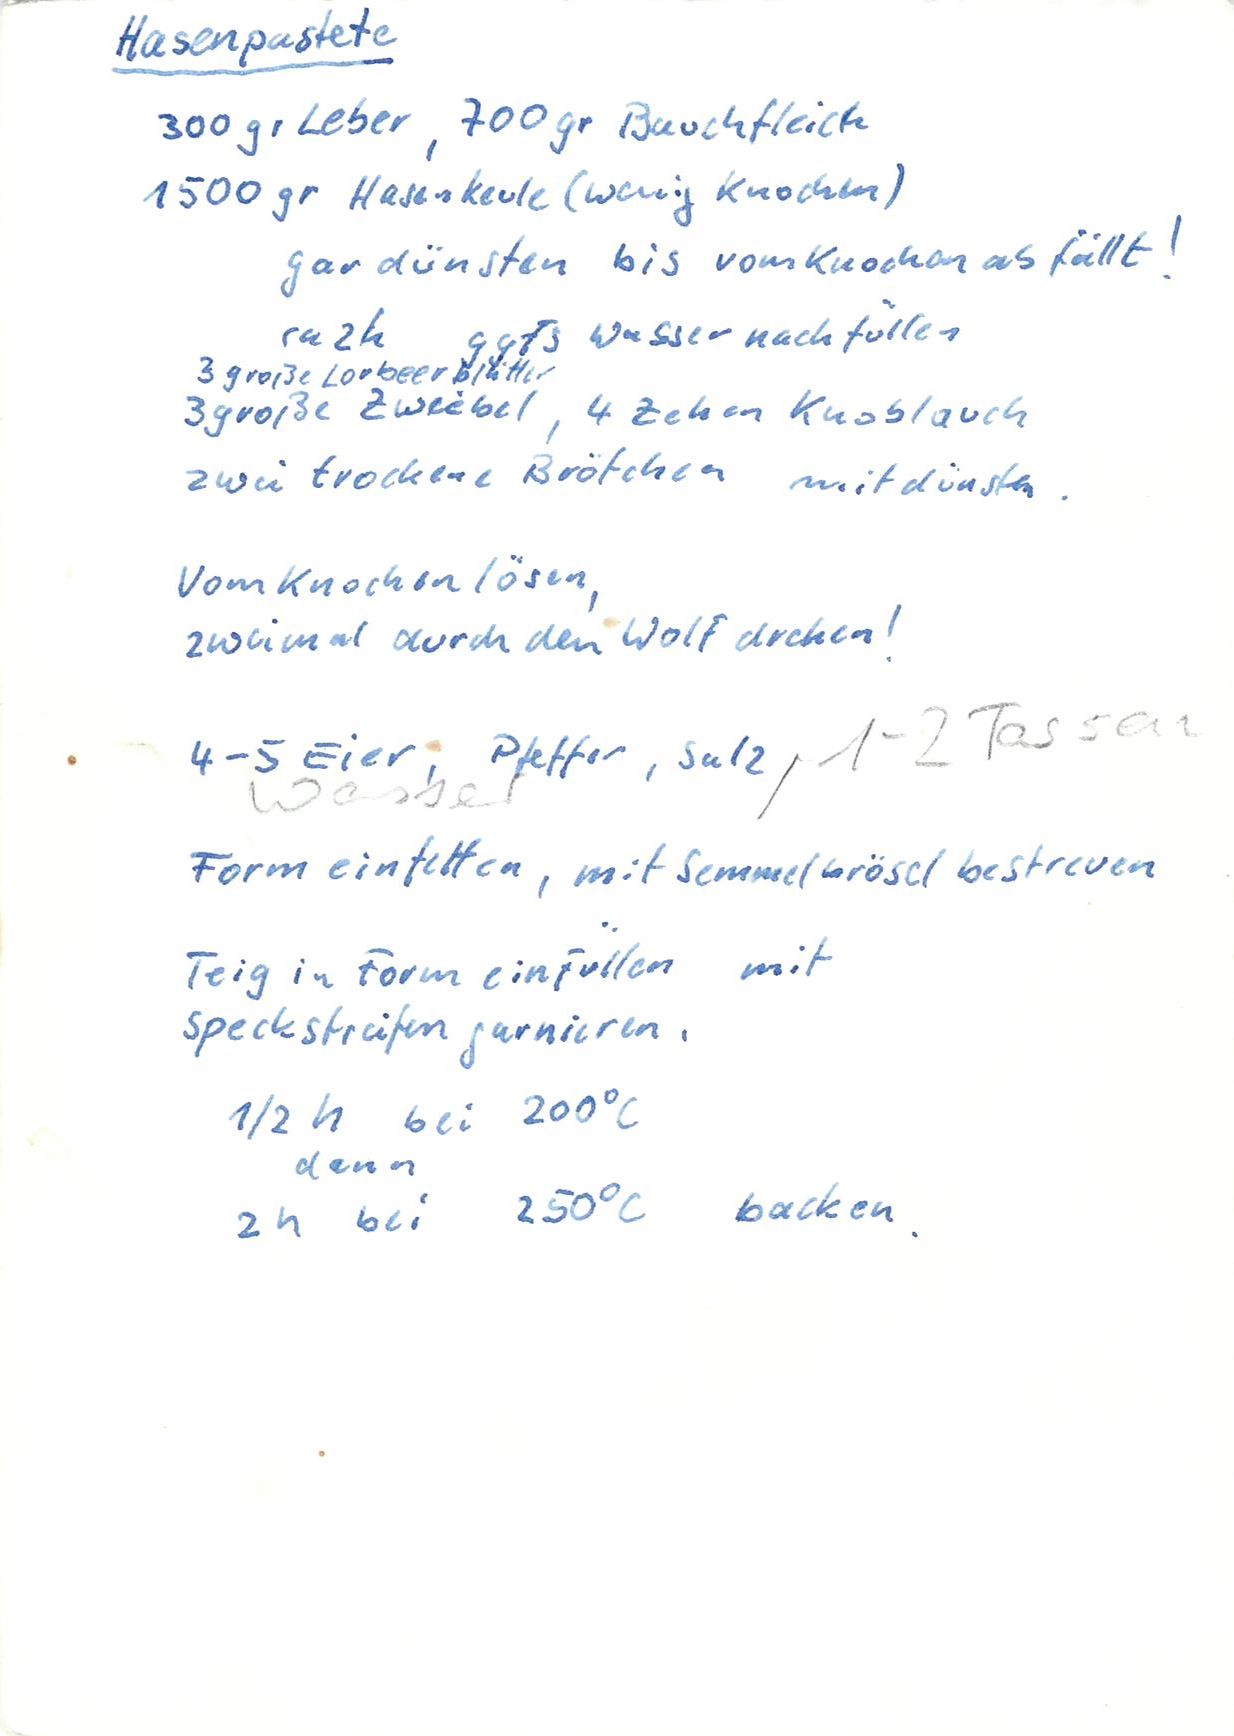 Hasenpastete
300 gr Leber, 700 gr Bauchfleich
1500 gr Hasenkeule (wenig Knochen)
gar dünsten bis vom Knochen abfällt!
ca 2h ggfs Wasser nachfüllen
3 große Lorbeerblätter
3 große Zwiebel, 4 Zehen Knoblauch
zwei trockene Brötchen mitdünsten.
Vom Knochen lösen,
zweimal durch den Wolf drehen!
4-5 Eier, Pfeffer, Salz, 1-2 Tassen
Wasser
Form einfetten, mit Semmelbrösel bestreuen
Teig in Form einfüllen mit
Speckstreifen garnieren.
1/2 h bei 200°C
dann
2h bei 250°C backen.